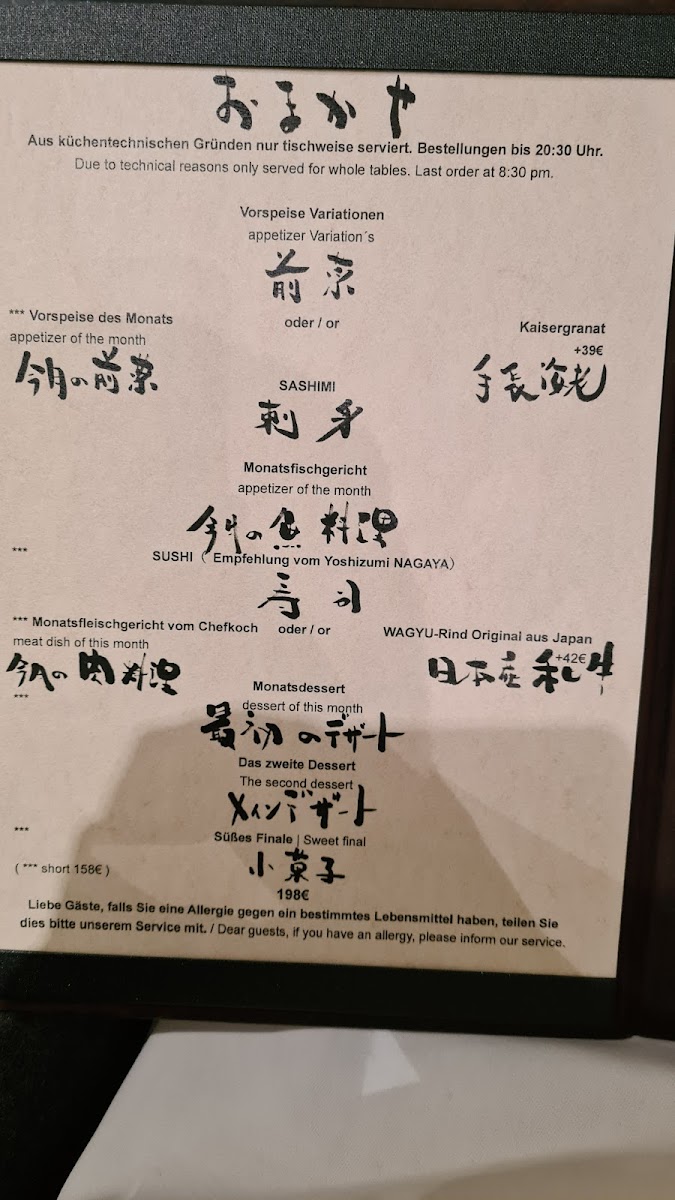 おまかせ
Aus küchentechnischen Gründen nur tischweise serviert. Bestellungen bis 20:30 Uhr.
Due to technical reasons only served for whole tables. Last order at 8:30 pm.
Vorspeise Variationen
appetizer Variation´s
前菜
*** Vorspeise des Monats
appetizer of the month
今月の前菜
oder / or
Kaisergranat
+39€
手長海老
SASHIMI
刺身
Monatsfischgericht
appetizer of the month
今月の魚料理
***
SUSHI ( Empfehlung vom Yoshizumi NAGAYA)
寿司
*** Monatsfleischgericht vom Chefkoch oder / or WAGYU-Rind Original aus Japan
meat dish of this month
+42€
今月の肉料理
日本産和牛
***
Monatsdessert
dessert of this month
最初のデザート
Das zweite Dessert
The second dessert
メインデザート
***
Süßes Finale | Sweet final
小菓子
( *** short 158€ )
198€
Liebe Gäste, falls Sie eine Allergie gegen ein bestimmtes Lebensmittel haben, teilen Sie
dies bitte unserem Service mit. / Dear guests, if you have an allergy, please inform our service.